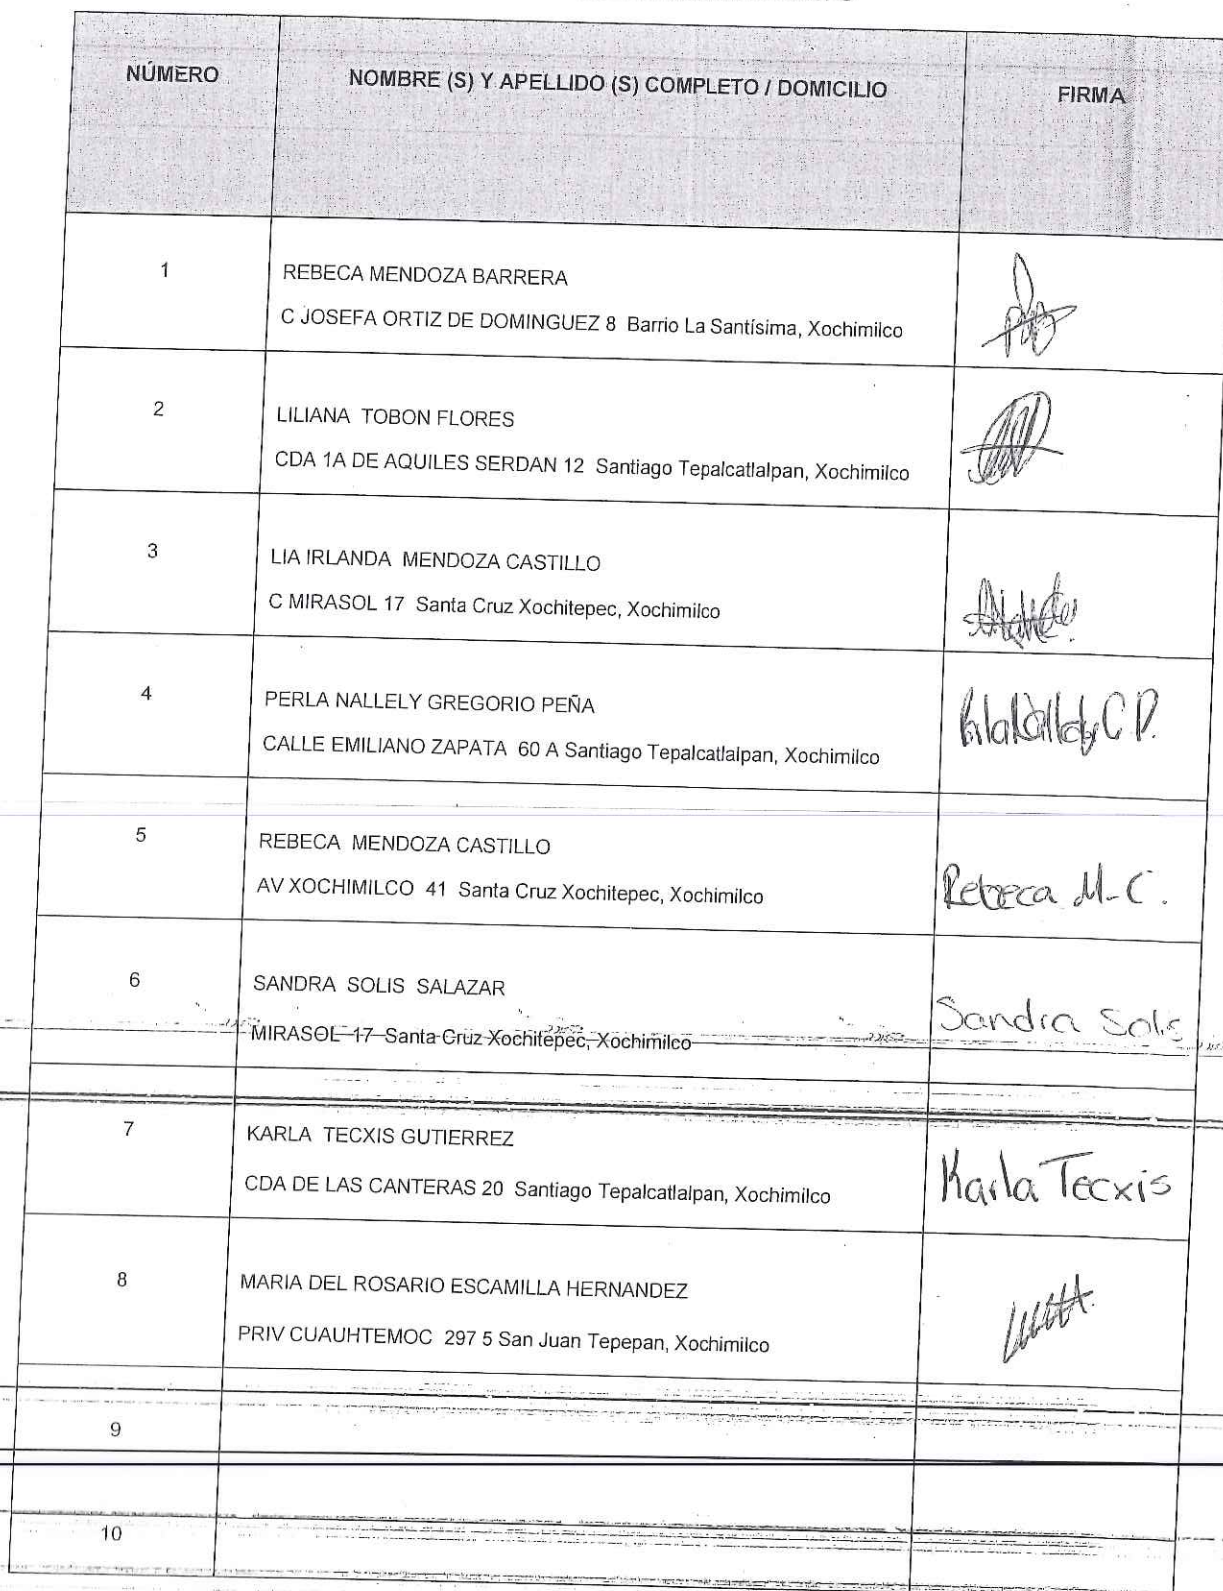 NÚMERO NOMBRE (S) Y APELLIDO (S) COMPLETO / DOMICILIO FIRMA
1 REBECA MENDOZA BARRERA
C JOSEFA ORTIZ DE DOMINGUEZ 8 Barrio La Santísima, Xochimilco
2 LILIANA TOBON FLORES
CDA 1A DE AQUILES SERDAN 12 Santiago Tepalcatlalpan, Xochimilco
3 LIA IRLANDA MENDOZA CASTILLO
C MIRASOL 17 Santa Cruz Xochitepec, Xochimilco
4 PERLA NALLELY GREGORIO PEÑA
CALLE EMILIANO ZAPATA 60 A Santiago Tepalcatlalpan, Xochimilco
5 REBECA MENDOZA CASTILLO
AV XOCHIMILCO 41 Santa Cruz Xochitepec, Xochimilco
Rebeca M-C.
6 SANDRA SOLIS SALAZAR
MIRASOL 17 Santa Cruz Xochitepec, Xochimilco
Sandra Solis
7 KARLA TECXIS GUTIERREZ
CDA DE LAS CANTERAS 20 Santiago Tepalcatlalpan, Xochimilco
Karla Tecxis
8 MARIA DEL ROSARIO ESCAMILLA HERNANDEZ
PRIV CUAUHTEMOC 297 5 San Juan Tepepan, Xochimilco
9
10